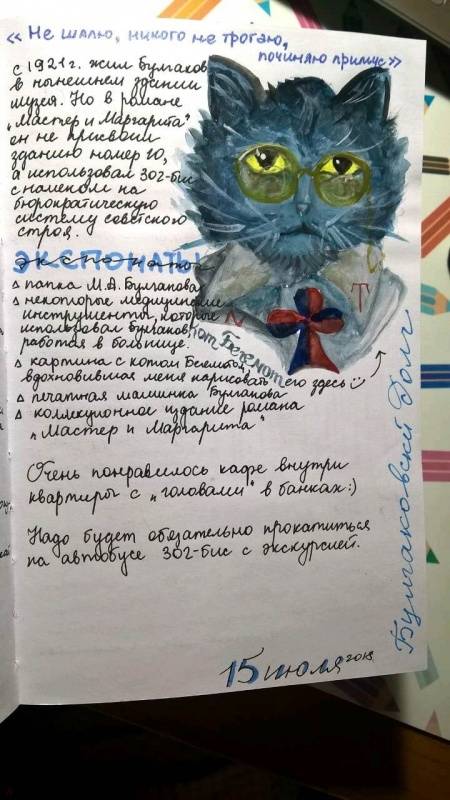 « Не шалю, никого не трогаю,
починяю примус »
с 1921г. жил Булгаков
в нынешнем здании
музея. Но в романе
„Мастер и Маргарита"
он не присвоил
зданию номер 10,
а использовал 302-бис
с намеком на
бюрократическую
систему советского
строя.
ЭКСПОНАТЫ
папка М.А. Булгакова
некоторые медицинские
инструменты, которые
использовал Булгаков,
работая в больнице.
картина с котом Бегемотом,
вдохновившая меня нарисовать его здесь
печатная машинка Булгакова
коллекционное издание романа
„Мастер и Маргарита"
N
T
кот Бегемот
Очень понравилось кафе внутри
квартиры с „головами" в банках:)
Надо будет обязательно прокатиться
на автобусе 302-бис с экскурсией.
15 июля 2018
Булгаковский Дом